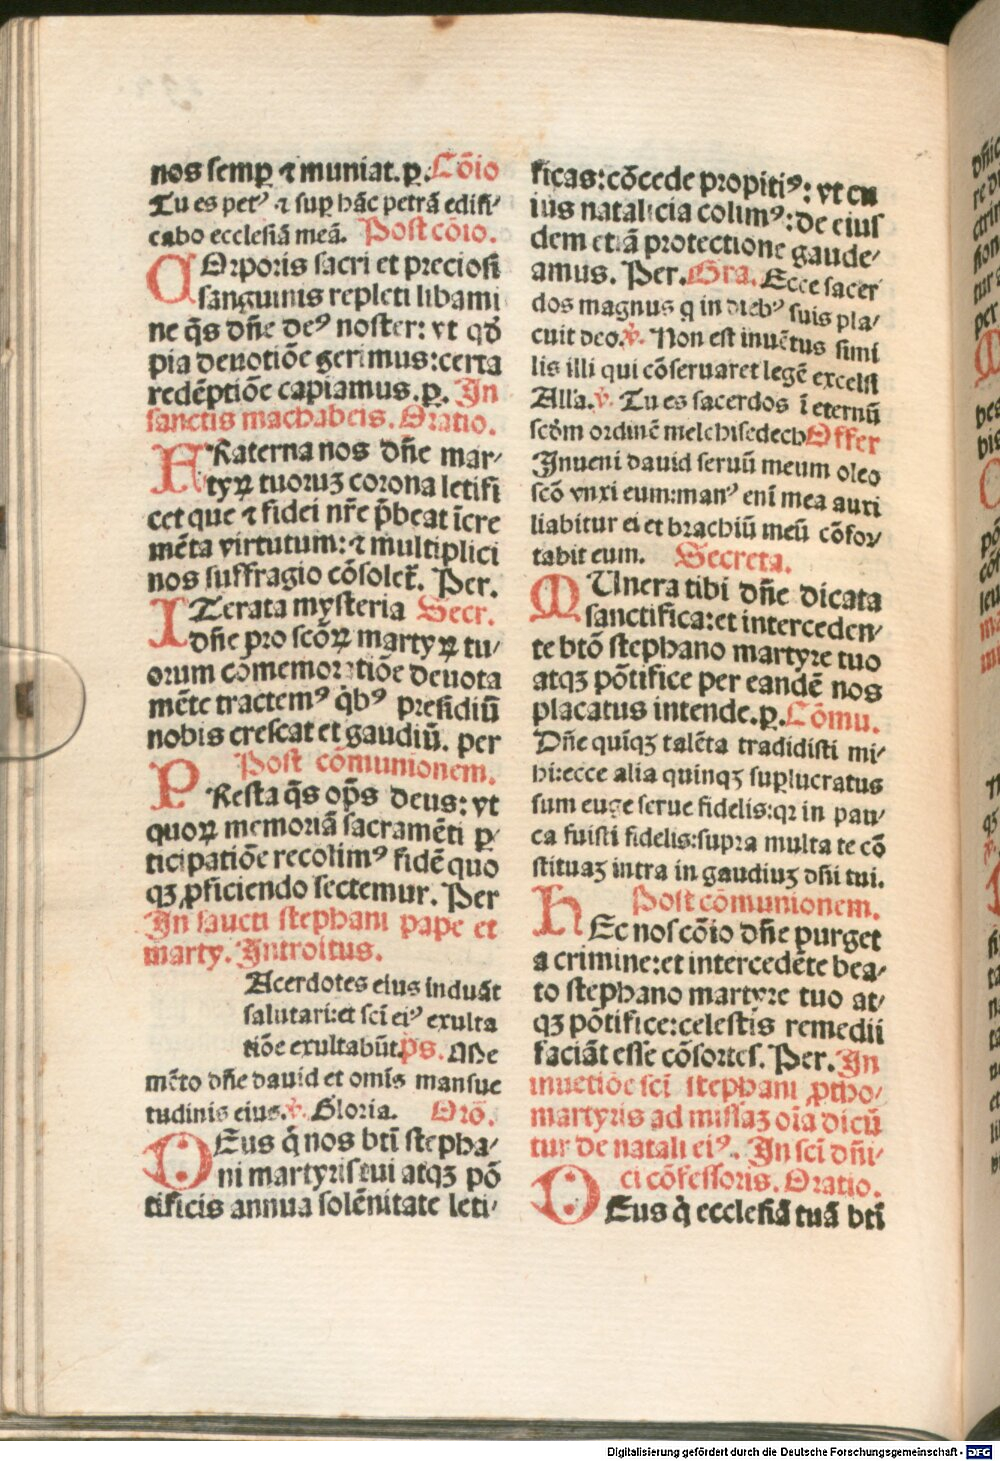 nos semꝑ ⁊ muniat. p. Cōio
Tu es petꝰ ⁊ suꝑ hāc petrā edifi⸗
cabo ecclesiā meā. Post cōio.
COrporis sacri et preciosi
sanguinis repleti libami
ne q̄s dn̄e deꝰ noster: vt qd̓
pia deuotiōe gerimus: certa
redēptiōe capiamus. p. In
sanctis machabeis. Oratio.
FRaterna nos dn̄e mar⸗
tyꝝ tuoruꝫ corona letifi
cet que ⁊ fidei nr̄e p̄beat īcre
mēta virtutum: ⁊ multiplici
nos suffragio cōsolet̄. Per.
ITerata mysteria Secr.
dn̄e pro scōꝝ martyꝝ tu⸗
orum cōmemoratiōe deuota
mēte tractemꝰ q̄bꝰ presidiū
nobis crescat et gaudiū. per
Post cōmunionem.
PResta q̄s op̄s deus: vt
quoꝝ memoriā sacramēti ꝑ⸗
ticipatiōe recolimꝰ fidē quo
qꝫ ꝓficiendo sectemur. Per
In sancti stephani pape et
marty. Introitus.
Acerdotes eius induāt
salutari: et sci̅ eiꝰ exulta
tiōe exultabūt. ps. Me
mēto dn̄e dauid et omīs mansue
tudinis eius. v̓. Gloria. Orō.
DEus q̄ nos bti̅ stepha⸗
ni martyris tui atqꝫ pō
tificis annua solēnitate leti⸗
ficas: cōcede propitiꝰ: vt cu
ius natalicia colimꝰ: de eius
dem etiā protectione gaude⸗
amus. Per. Gra. Ecce sacer
dos magnus q in diebꝰ suis pla⸗
cuit deo. v̓. Non est inuētus simi
lis illi qui cōseruaret legē excelsi
Alla. v̓. Tu es sacerdos ī eternū
scd̓m ordinē melchisedech Offer
Inueni dauid seruū meum oleo
scō vnxi eum: manꝰ eni̅ mea auxi
liabitur ei et brachiū meū cōfor⸗
tabit eum. Secreta.
MUnera tibi dn̄e dicata
sanctifica: et interceden⸗
te btō stephano martyre tuo
atqꝫ pōtifice per eandē nos
placatus intende. p. Cōmu.
Dn̄e quīqꝫ talēta tradidisti mi⸗
hi: ecce alia quinqꝫ suꝑlucratus
sum euge serue fidelis: qꝛ in pau⸗
ca fuisti fidelis: supra multa te cō
stituaꝫ intra in gaudiuꝫ dn̄i tui.
Post cōmunionem.
HEc nos cōio dn̄e purget
a crimine: et intercedēte bea⸗
to stephano martyre tuo at⸗
qꝫ pōtifice: celestis remedii
faciāt esse cōsortes. Per. In
inuētiōe sci̅ stephani ꝓtho⸗
martyris ad missaꝫ oi̅a dicū
tur de natali eiꝰ. In sci̅ dn̄i⸗
ci cōfessoris. Oratio.
DEus q̄ ecclesiā tuā bti̅